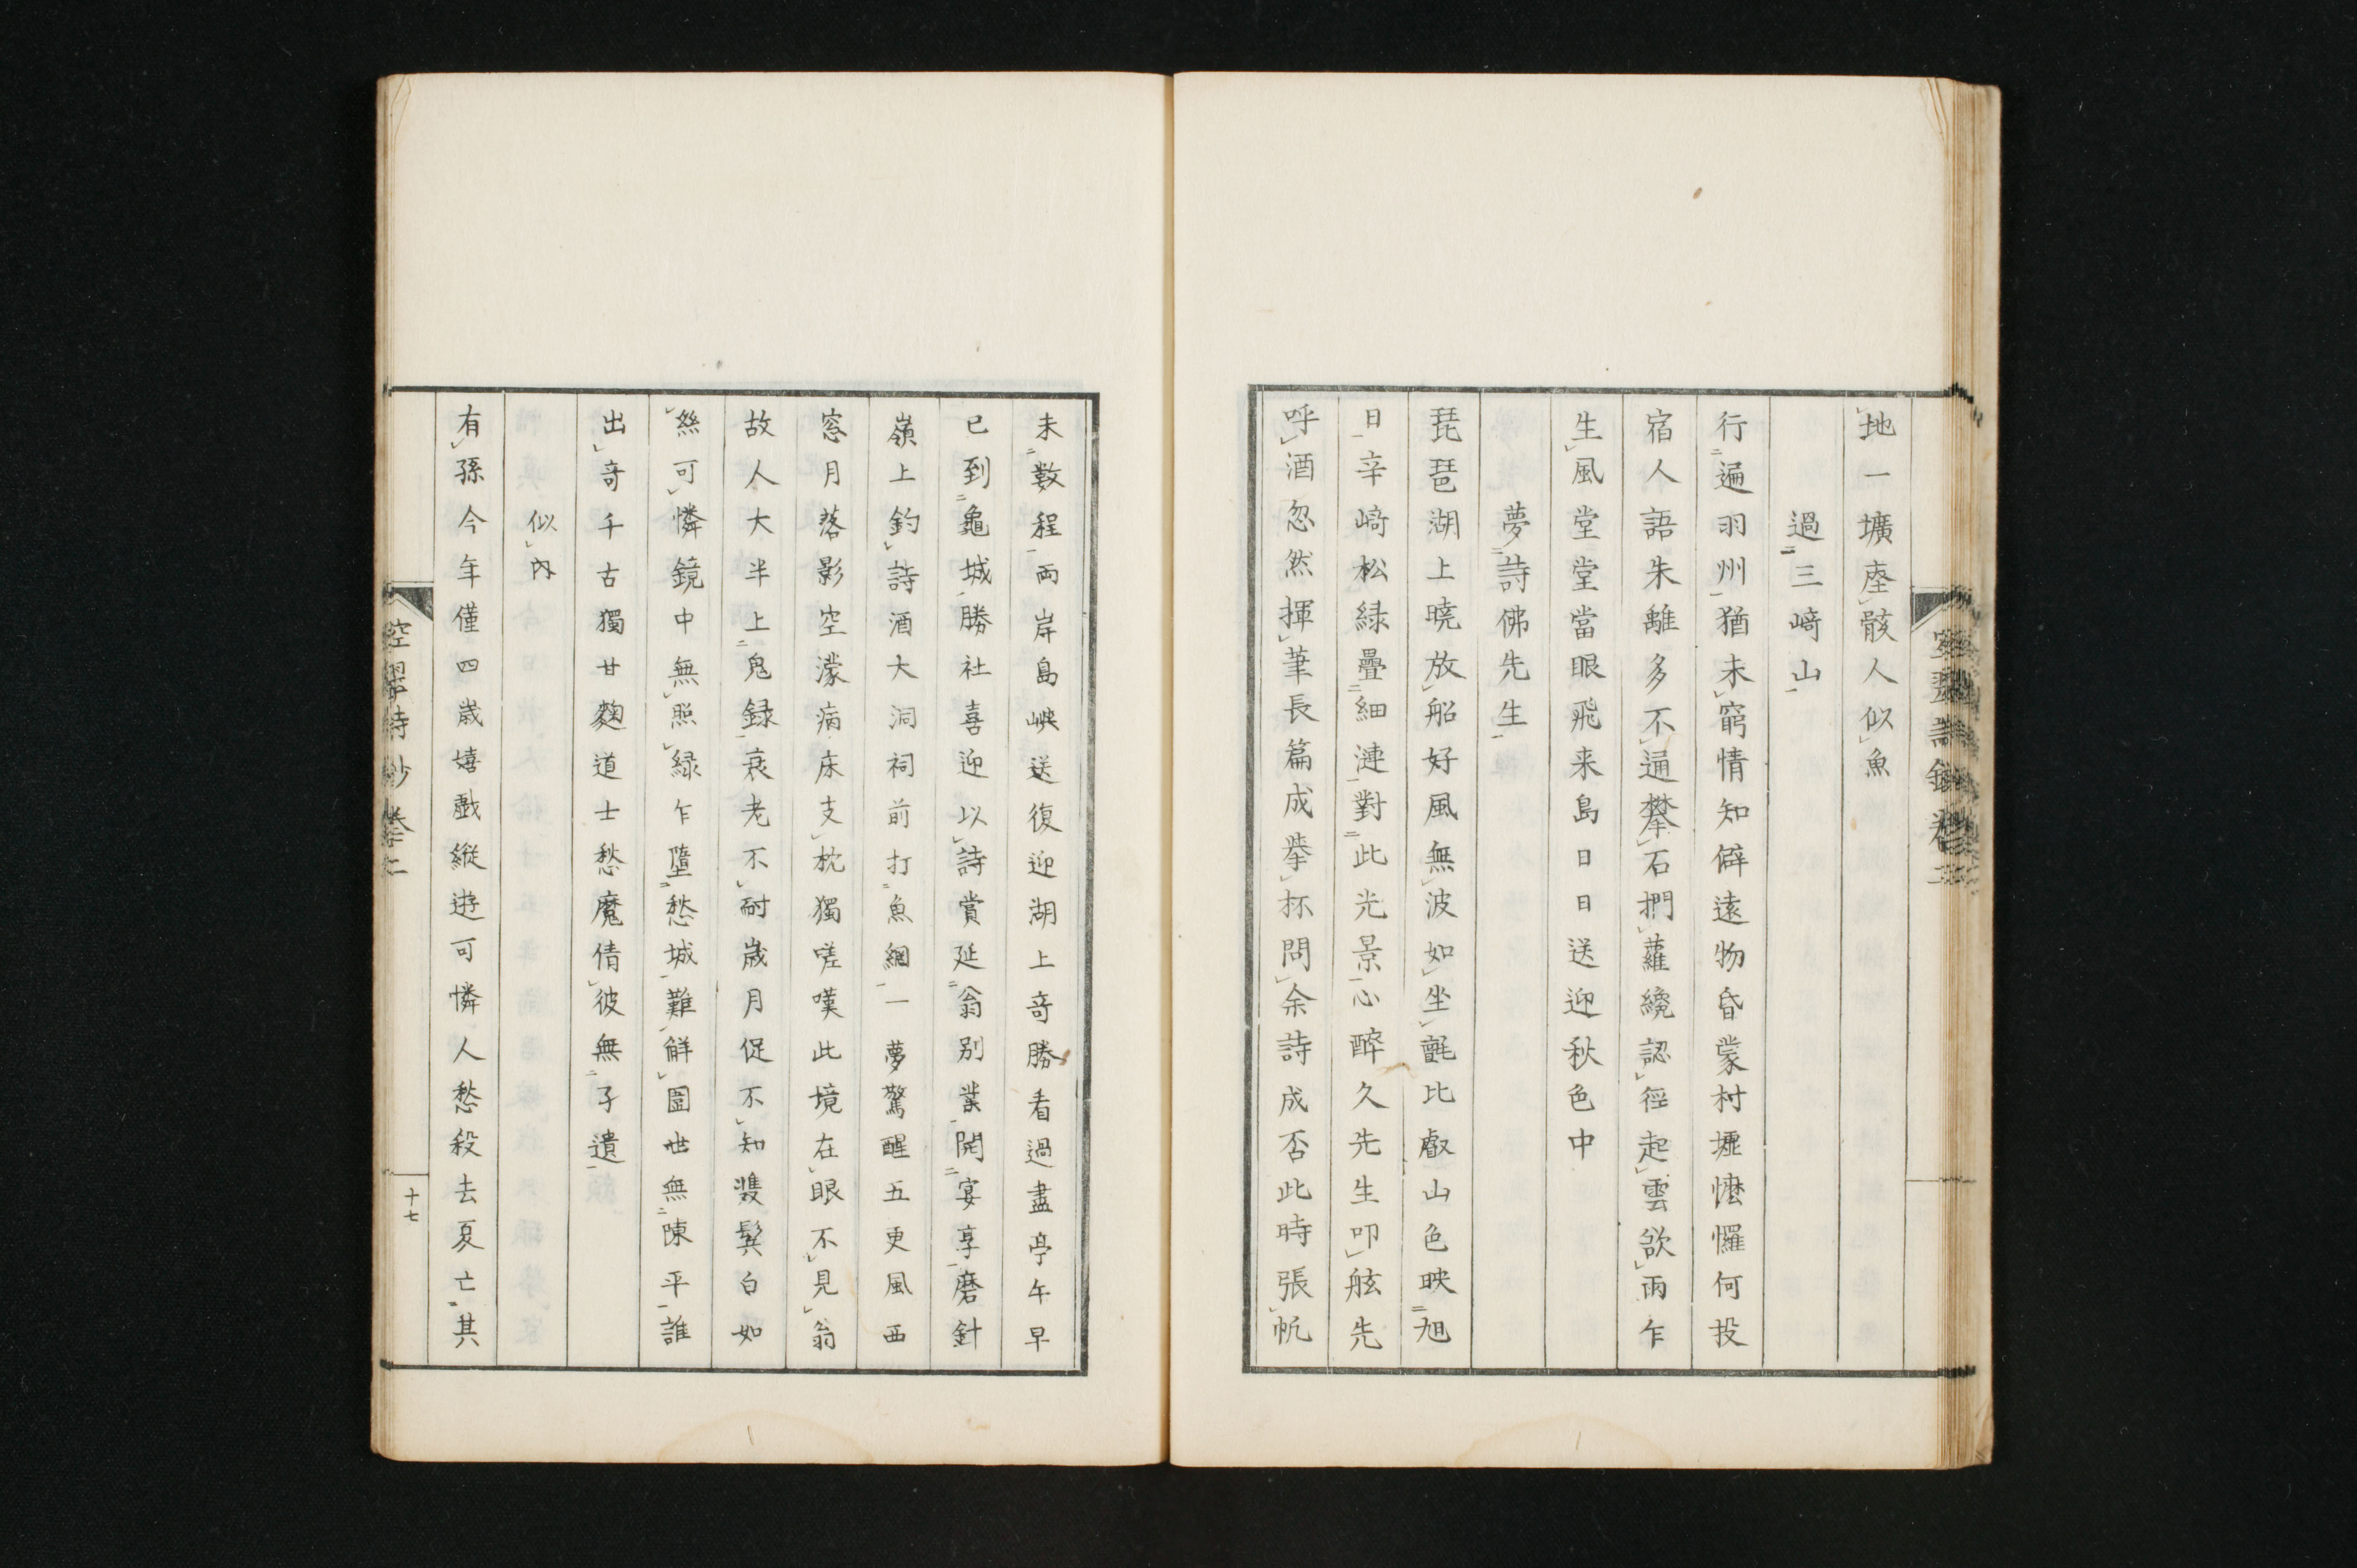 地一壙塵骸人似魚
過三﨑山
行遍羽州猶未窮情知僻遠物昏蒙村墟懡㦬何投
宿人語朱離多不通攀石捫蘿纔認徑起雲欲雨乍
生風堂堂當眼飛来島日日送迎秋色中
夢詩佛先生
琵琶湖上曉放船好風無波如坐氈比叡山色映旭
日辛﨑松緑疊細漣對此光景心醉久先生叩舷先
呼酒忽然揮筆長篇成擧杯問余詩成否此時張帆
未數程両岸島嶼送復迎湖上竒勝看過盡亭午早
已到龜城勝社喜迎以詩賞延翁別業開宴享磨針
嶺上釣詩酒大洞祠前打魚網一夢驚醒五更風西
窓月落影空濛病床支枕獨嗟嘆此境在眼不見翁
故人大半上鬼録衰老不耐歳月促不知雙鬢白如
絲可憐鏡中無照緑乍墮愁城難解圍世無陳平誰
出竒千古獨甘麴道士愁魔倩彼無孑遺
似内
有孫今年僅四歳嬉戯縦遊可憐人愁殺去夏亡其
詩鈔巻二
十七